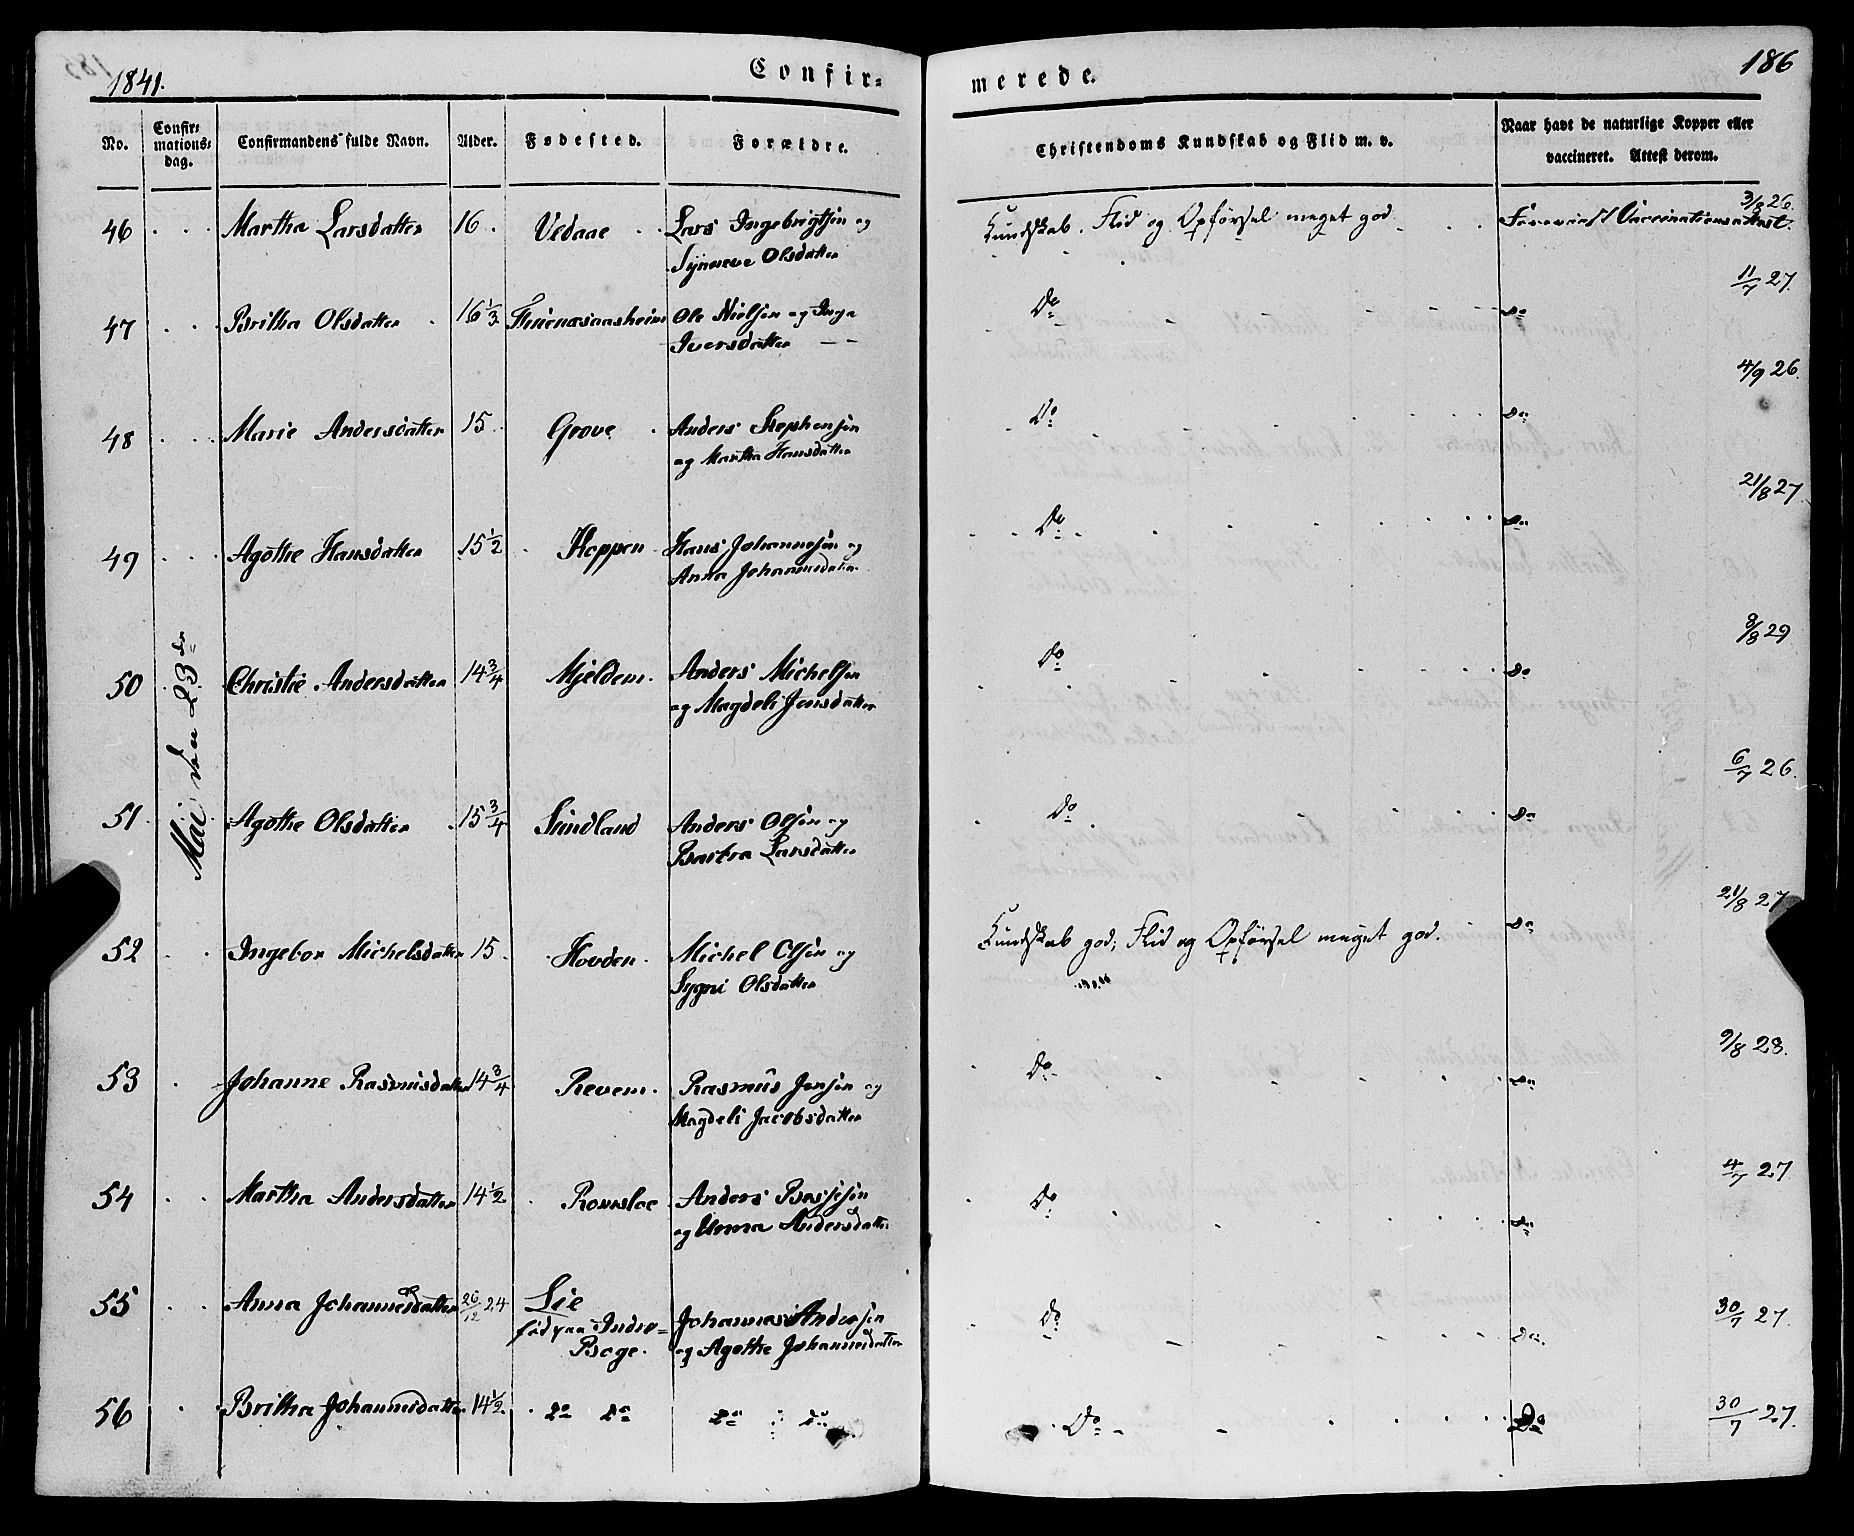 1841.
Confir=
merede.
186
No.
Confir=
mations=
dag.
Confirmandens fulde Navn.
Alder.
Fødested.
Forældre.
Christendoms Kundskab og Flid m. v.
Naar havt de naturlige Kopper eller
vaccineret. Attest derom.
Mai den 23de
46 Martha Larsdatter 16. Vedaae Lars Ingebrigtsøn og
Synneve Olsdatter
Kundskab, Flid og Opførsel meget god Foreviist Vaccinationsattest. 3/8 26.
47 Britha Olsdatter 16 1/3 Ole Nielsøn og Inga
Iversdatter
Do Do 11/7 27.
48 Marie Andersdatter 15. Grove Anders Stephensøn
og Martha Hansdatter
Do Do 4/9 26.
49 Agothe Hansdatter 15 1/2 Hoppen Hans Johannesøn og
Anna Johannesdatter
Do Do 21/8 27
50 Christie Andersdatter 14 3/4 Mjeldem. Anders Michelsøn
og Magdeli Jensdatter
Do Do 8/8 29
51. Agothe Olsdatter 15 3/4 Sundland Anders Olsøn og
Barbra Larsdatter
Do Do 6/7 26.
52 Ingebor Michelsdatter 15. Hovden. Michel Olsøn og
Sygni Olsdatter
Kundskab god; Flid og Opførsel meget god. Do 21/8 27
53 Johanne Rasmusdatter 14 3/4 Revem. Rasmus Jensøn og
Magdeli Jacobsdatter
Do Do 9/8 28.
54 Martha Andersdatter 14 1/2 Romsloe Anders
og Anna Andersdatter
Do Do 4/7 27
55 Anna Johannesdatter 26/12 24 Lie
fød paa Indre=
Bøge.
Johannes Andersøn
og Agothe Johannesdatter
Do Do 30/7 27.
56 Britha Johannesdatter 14 1/2. Do Do Do Do
Do Do 30/7 27.